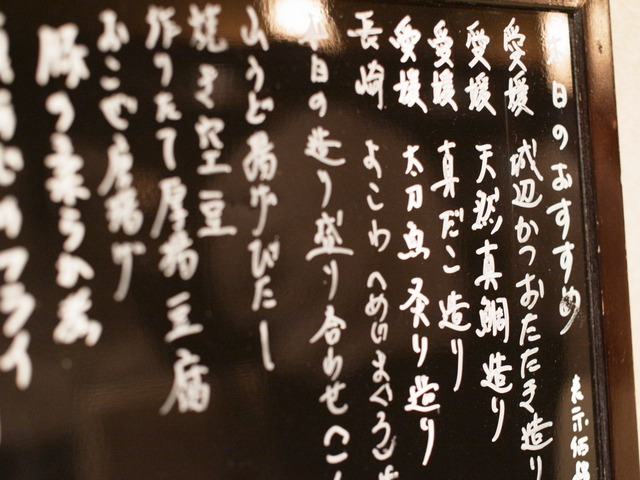 本日のおすすめ
表示価格
愛媛 城辺かつおたたき造り
愛媛 天然真鯛造り
愛媛 真だこ造り
愛媛 太刀魚炙り造り
長崎 よこわ
本日の造り盛り合わせ
山うど揚げびたし
焼き空豆
作りたて厚揚豆腐
おこぜ唐揚げ
豚の
フライ